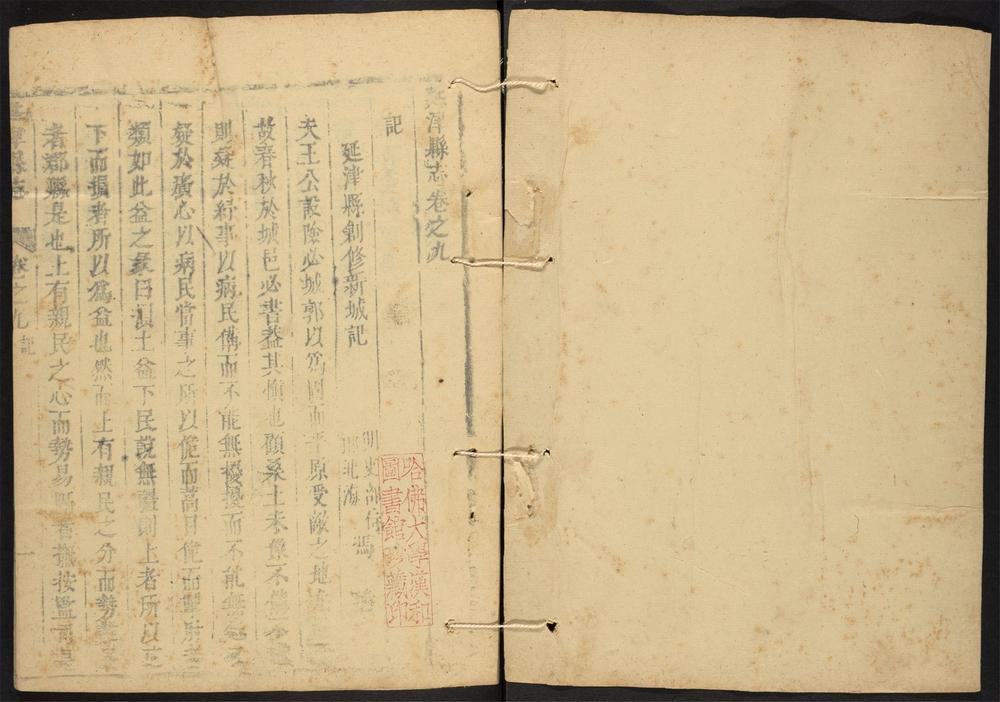 延津縣志卷之九
記
延津縣剏修新城記
明吏部 馮
北海
夫王公設險必城郭以爲固而平原受敵之地
故春秋於城邑必書葢其愼也顧桑土未
則疑於紓事以病民備而不能無擾擾而不能無
疑於廣心以病民當事之所以倦而蒿目倦而
類如此益之彖曰損上益下民說無疆則上者所以
下而損者所以爲益也然而上有親民之分而勢
者郡縣是也上有親民之心而勢易 者撫按監司是
延津縣志 卷之九 記 一
哈佛大學漢和
圖書館珍藏印